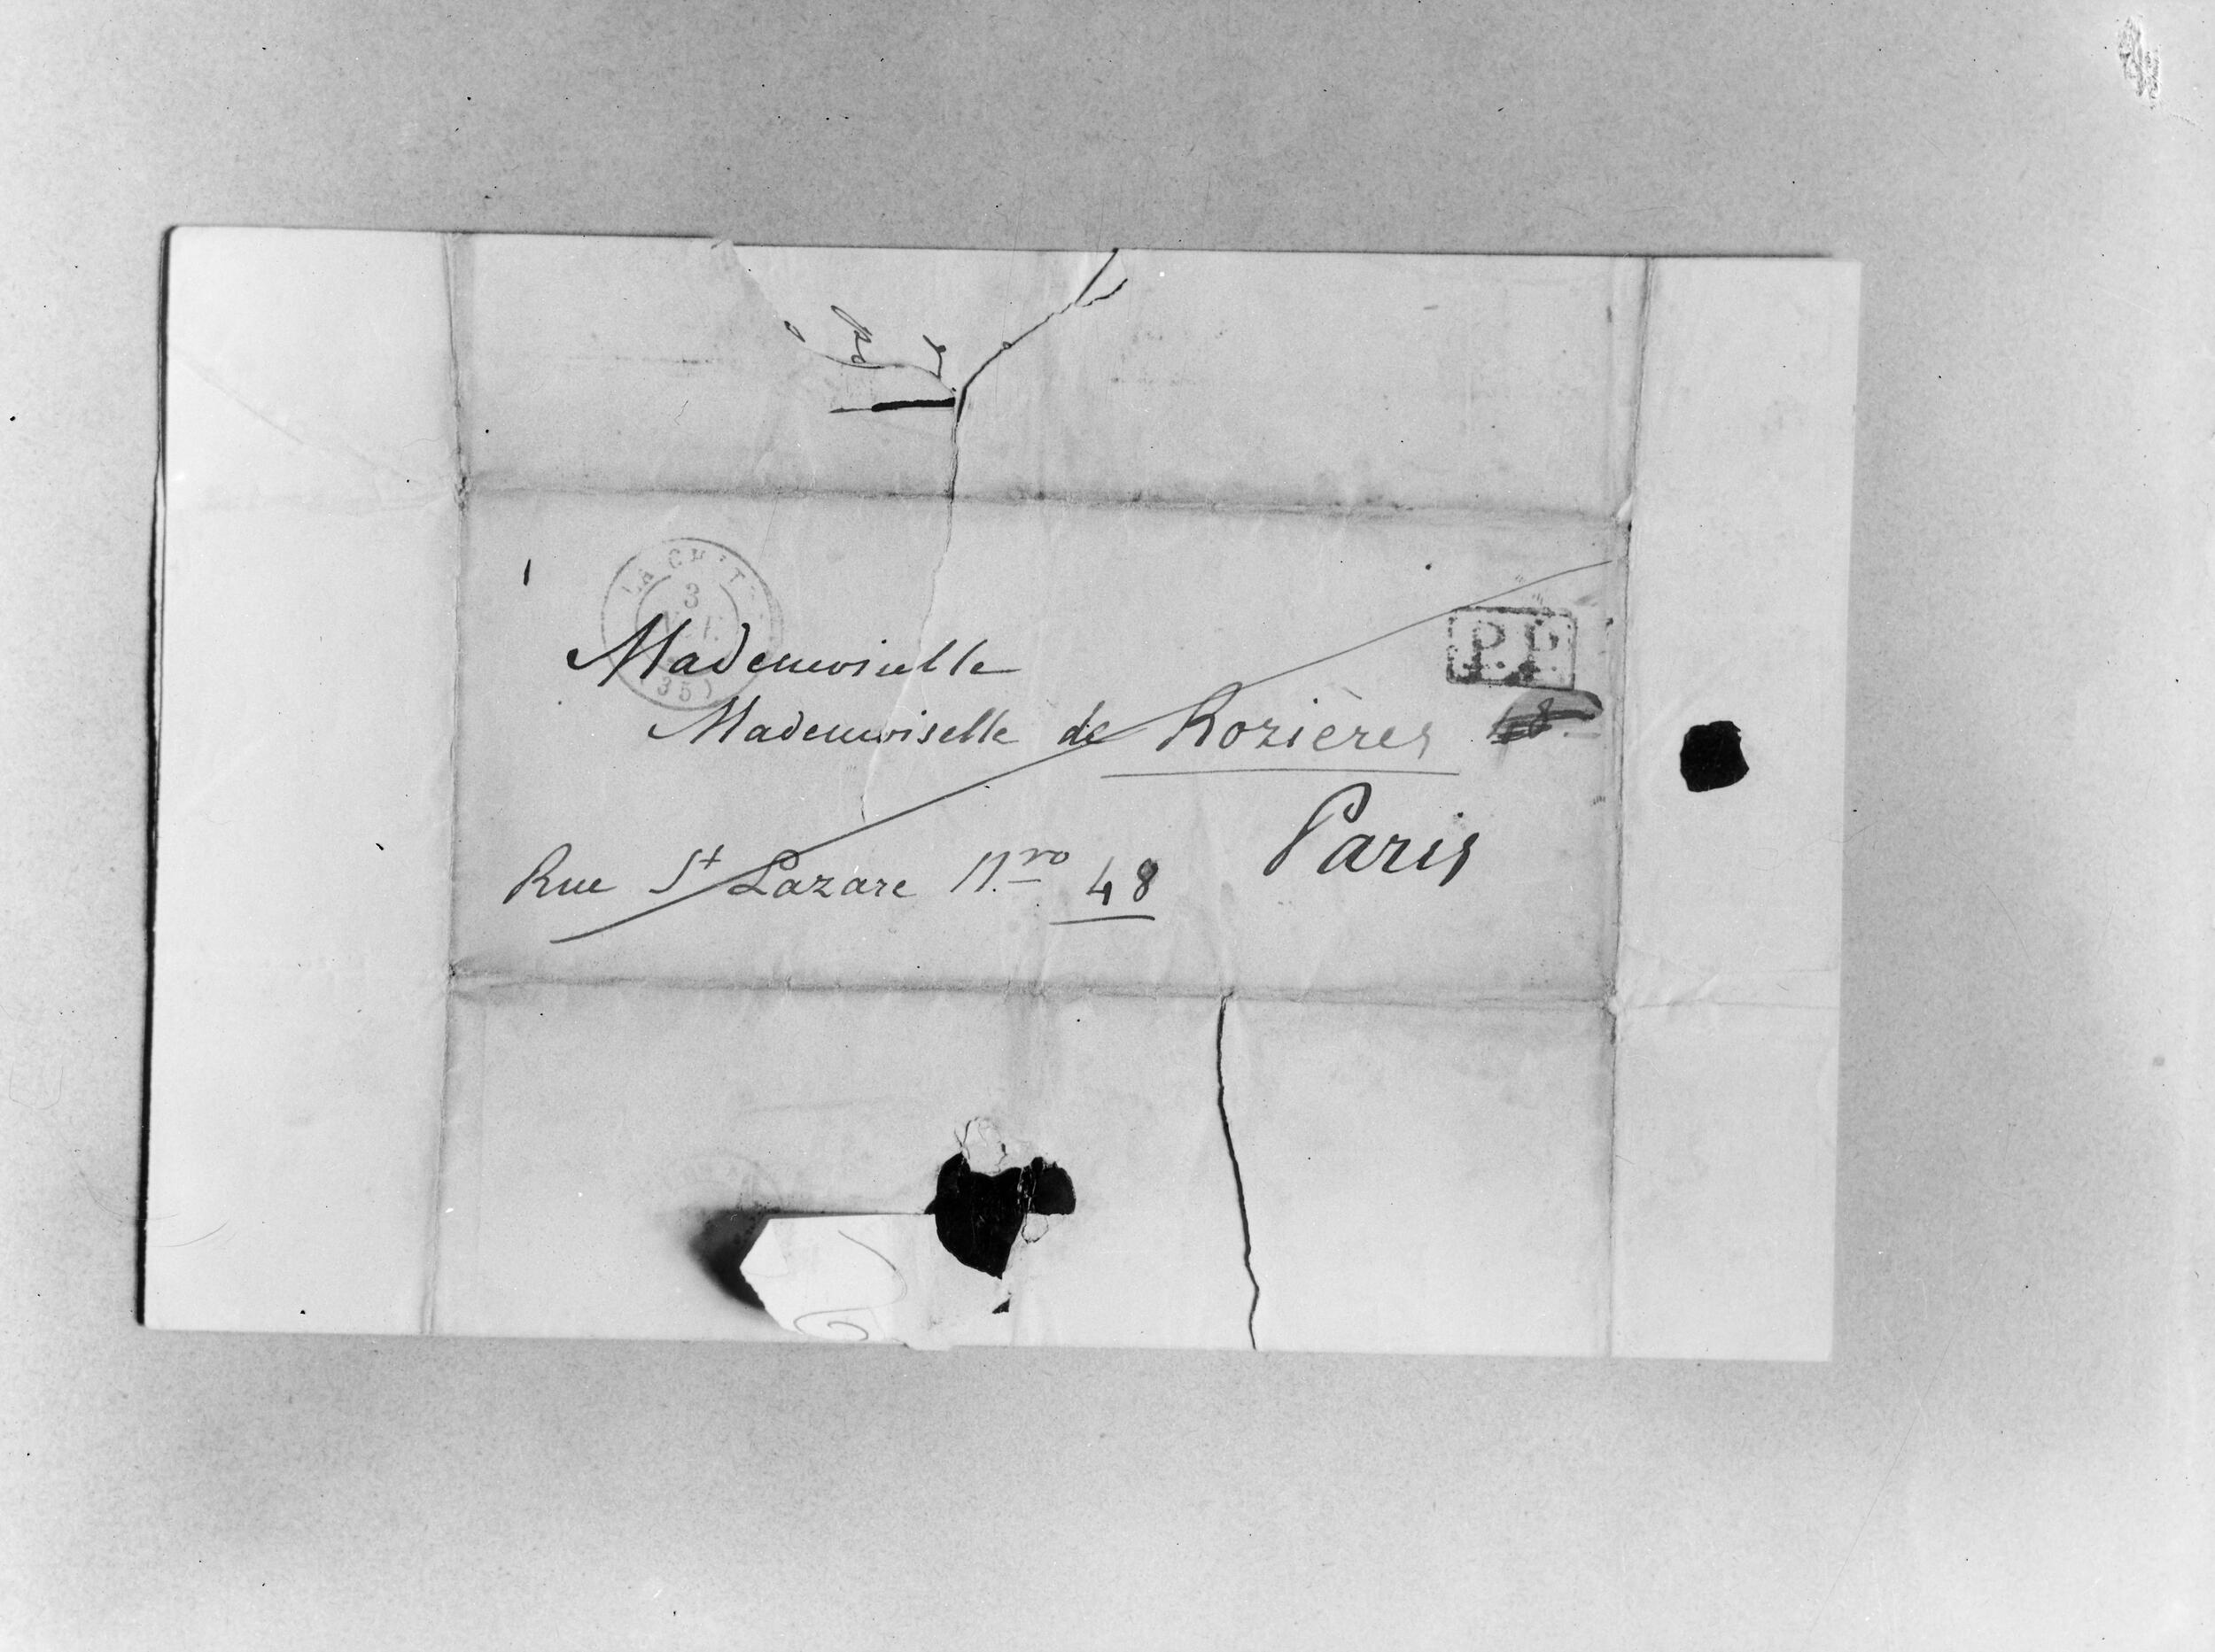 3
(35)
P.P.
Mademoiselle
Mademoiselle de Rozières
Paris
Rue St Lazare Nro 48